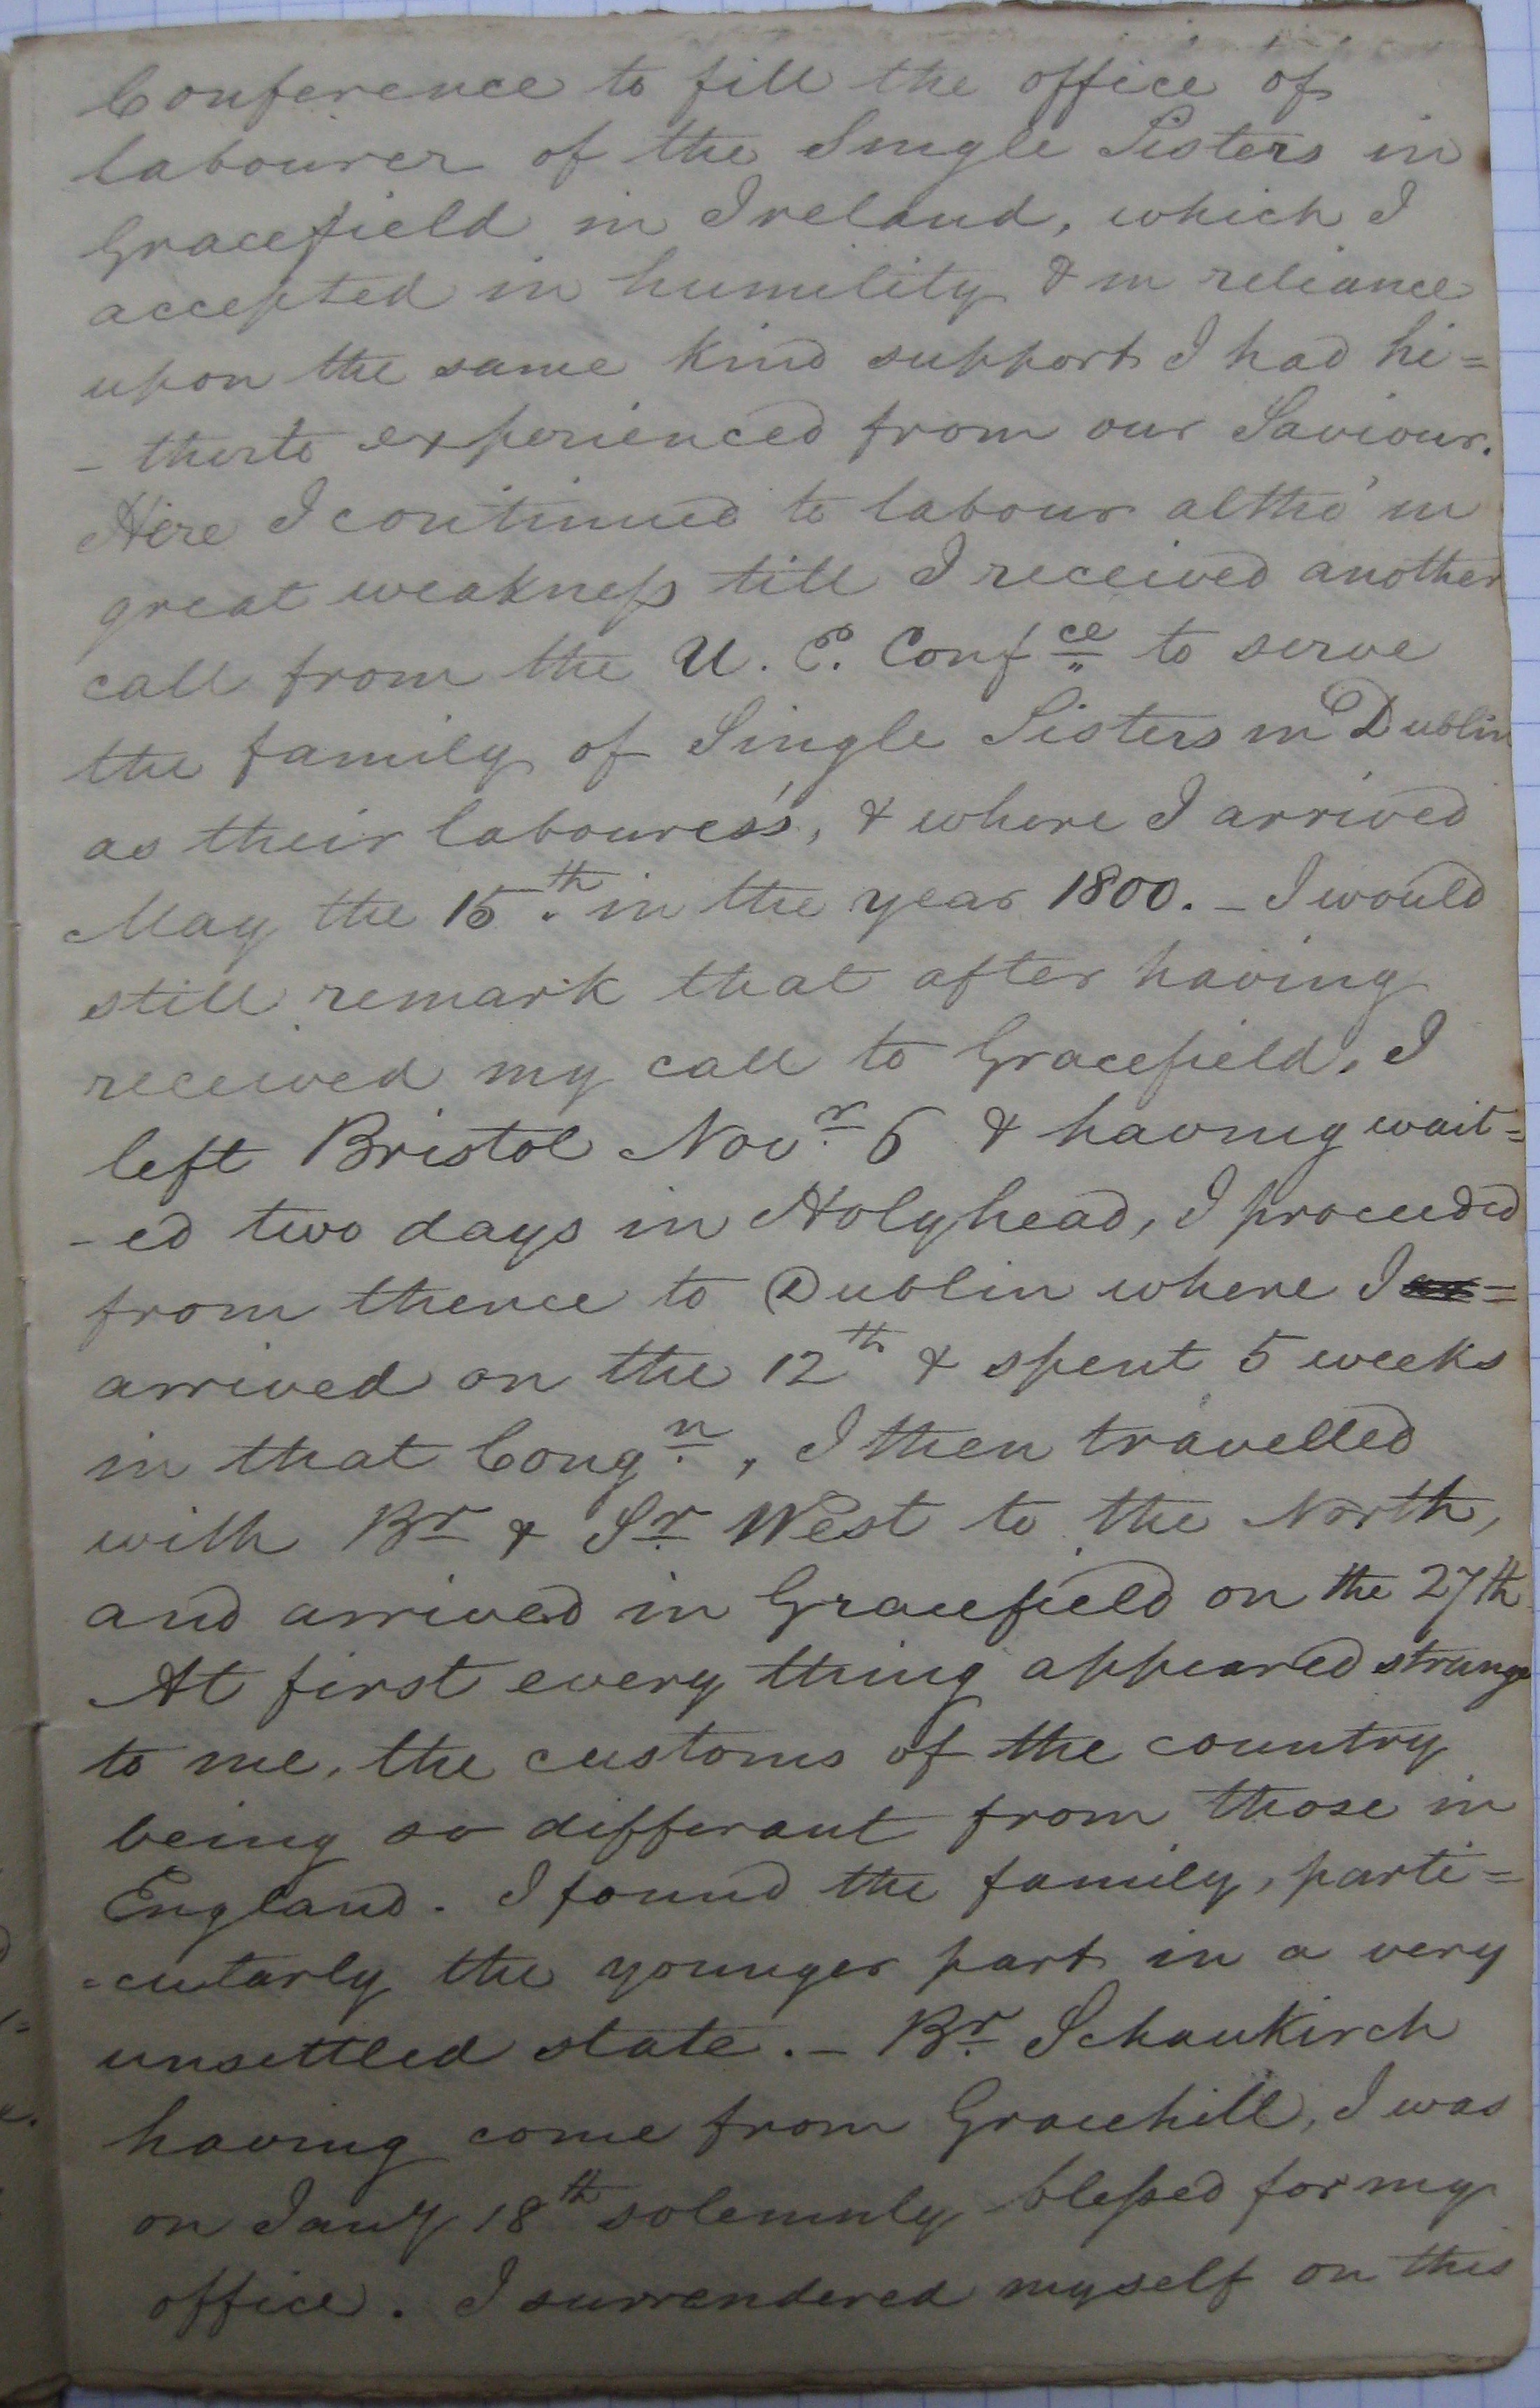 Conference to fill the office of
labourer of the Single Sisters in
Gracefield in Ireland, which I
accepted in humility & in reliance
upon the same kind support I had hi=
- therto experienced from our Saviour.
Here I continued to labour altho' in
great weakness till I received another
call from the U. E. Conf.ce to serve
the family of Single Sisters in Dublin
as their labouress, & where I arrived
May the 15th in the year 1800. - I would
still remark that after having
received my call to Gracefield, I
left Bristol Novr 6 & having wait=
- ed two days in Holyhead, I proceeded
from thence to Dublin where I =
arrived on the 12th & spent 5 weeks
in that Congn, I then travelled
with Br & Sr West to the North,
and arrived in Gracefield on the 27th
At first every thing appeared strange
to me, the customs of the country
being so differant from those in
England. I found the family, parti=
=cularly the younger part in a very
unsettled state. - Br. Schaukirch
having come from Gracehill, I was
on Jany 18th solemnly blessed for my
office. I surrendered myself on this